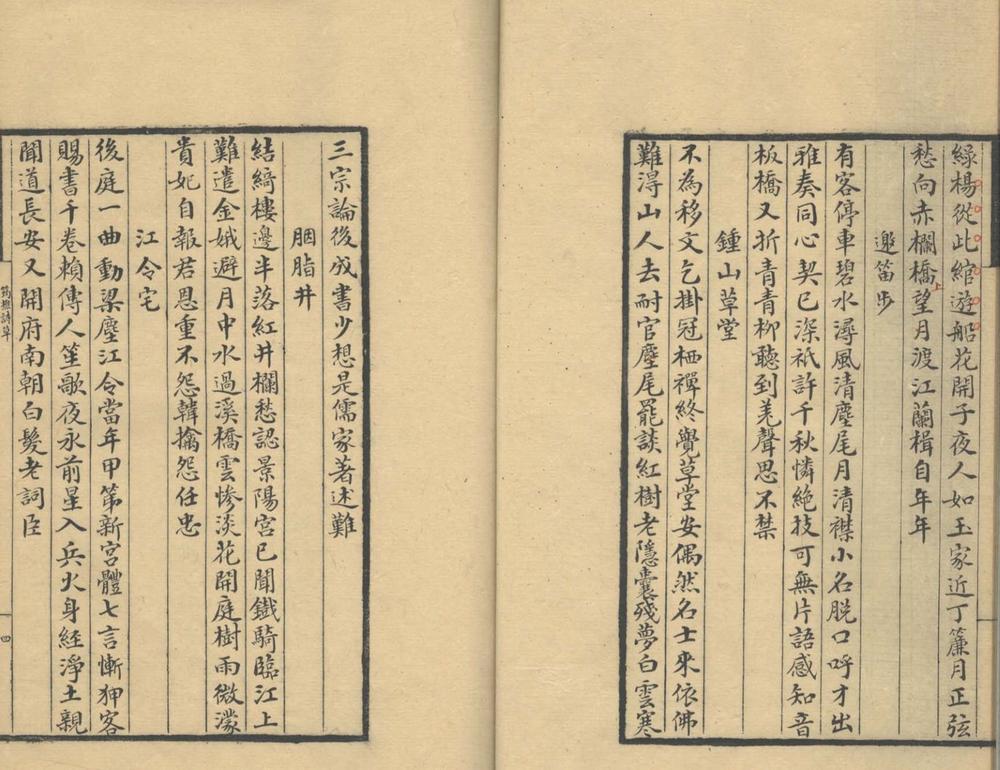 綠楊從此綰遊船花開子夜人如玉家近丁簾月正弦
愁向赤欄橋上望月渡江蘭楫自年年
邀笛步
有客停車碧水潯風清麈尾月清襟小名脫口呼才出
雅奏同心契已深祇許千秋憐絶技可無片語感知音
板橋又折青青柳聽到羌聲思不禁
鍾山草堂
不為移文乞掛冠栖禪終覺草堂安偶然名士來依佛
難得山人去耐官麈尾罷談紅樹老隱囊殘夢白雲寒
三宗論後成書少想是儒家著述難
胭脂井
結綺樓邊半落紅井欄愁認景陽宮已聞鐵騎臨江上
難遣金娥避月中水過溪橋雲慘淡花開庭樹雨微濛
貴妃自報君恩重不怨韓擒怨任忠
江令宅
後庭一曲動梁塵江令當年甲第新宮體七言慚狎客
賜書千卷賴傳人笙歌夜永前星入兵火身經淨土親
聞道長安又開府南朝白髮老詞臣
詩草
四